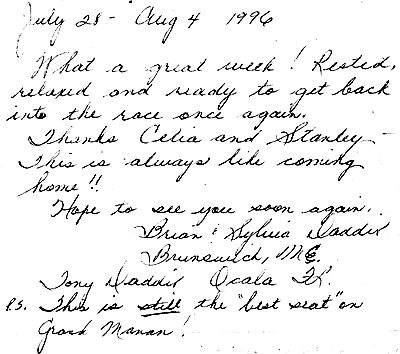 July 28 - Aug 4 1996
What a great week! Rested,
relaxed and ready to get back
into the race once again.
Thanks Celia and Stanley -
This is always like coming
home!!
Hope to see you soon again.
Brian & Sylvia Daddis
Brunswick, ME.
Tony Daddis Ocala FL.
P.S. This is still the "best seat" on
Grand Manan!